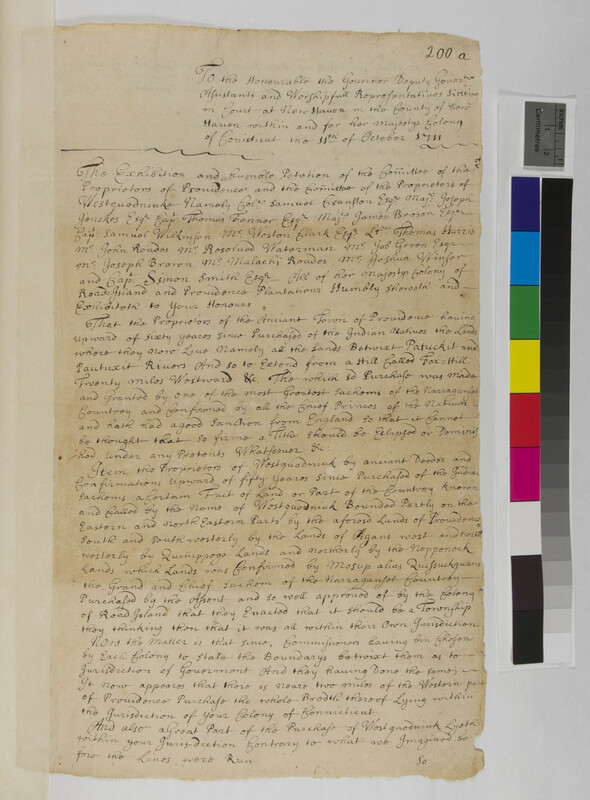 200 a
To the Honourable the Governor Deputy Governr
Assistants and Worshipfull Representatives Sitting
in Court at New Haven in the County of New
Haven within and for her Majestys Colony
of Conecticut the 11th of October 1711
The Exhibition and Humble Petation of the Comittee of the
Proprietors of Providence and the Comittee of the Proprietors of
Westquodnicke Namely Colo Samuel Cranston Esqr Majr Joseph
Jenckes Esqr Capt Thomas Fenner Esqr Majr James Brown Esqr
Capt Samuel Wilkinson Mr Weston Clark Esqr Lt Thomas Harris
Mr John Roades Mr Resolud Waterman Mr Job Green Esqr
Mr Joseph Brown Mr Malachi Roades Mr Joshua Winsor
and Capt Simon Smith Esqr All of her Majestys Colony of
Road-Island and Providence Plantations Humbly Sheweth and
Exhibiteth to Your Honours
That the Proprietors of the Ancient Town of Providence having
Upward of Sixty yeares since Purchased of the Indian Natives the Lands
where they Now Live Namely all the Lands Betwixt Patucket and
Pautuxit Rivers And so to Extend from a Hill Called Fox-Hill
Twenty Miles Westward &c. The which sd Purchase was Made
and Granted by one of the most Greatest Sachems of the Narraganset
Countrey and Confirmed by all the Chief Princes of the Natives
and hath had a good Sanction from England so that it Cannot
be thought that so firme a Title should be Eclipsed or Deminis
hed under any Pretents Whatsoever &c.
Item the Proprietors of Westquodniuk by ancient Deedes and
Confirmations Upward of fifty Yeares Since Purchased of the Indian
Sachems a Certain Tract of Land or Part of the Countrey Knowne
and Called by the Name of Westquodniuk Bounded Partly on the
Eastern and North Eastern Parts by the aforesd Lands of Providence
South and Southwesterly by the Lands of Agans west and north
westerly by Quinipogo Lands and Northerly by the Nepponock
Lands which Lands was Confirmed by Mosup alias Quissuckquans
the Grand and Chief Sachem of the Narraganset Countrey
Purchased by the Assent and so well approved of by the Colony
of Road-Island that they Enacted that it should be a Township
they thinking then that it was all within their Own Jurisdiction
Now the Matter is that since, Commissioners having bin Chosen
by Each Colony to State the Boundarys betwixt them as to
Jurisdiction of Goverment And they having Done the same;
It now appeares that there is neare two miles of the Western part
of Providence Purchase the whole Bredth thereof Lying within
the Jurisdiction of Your Colony of Connecticut
And also a Great Part of the Purchase of Westquodniuk Lyeth
within your Jurisdiction Contrary to what we Imagined be
fore the Lines were Run
So
Centimetres